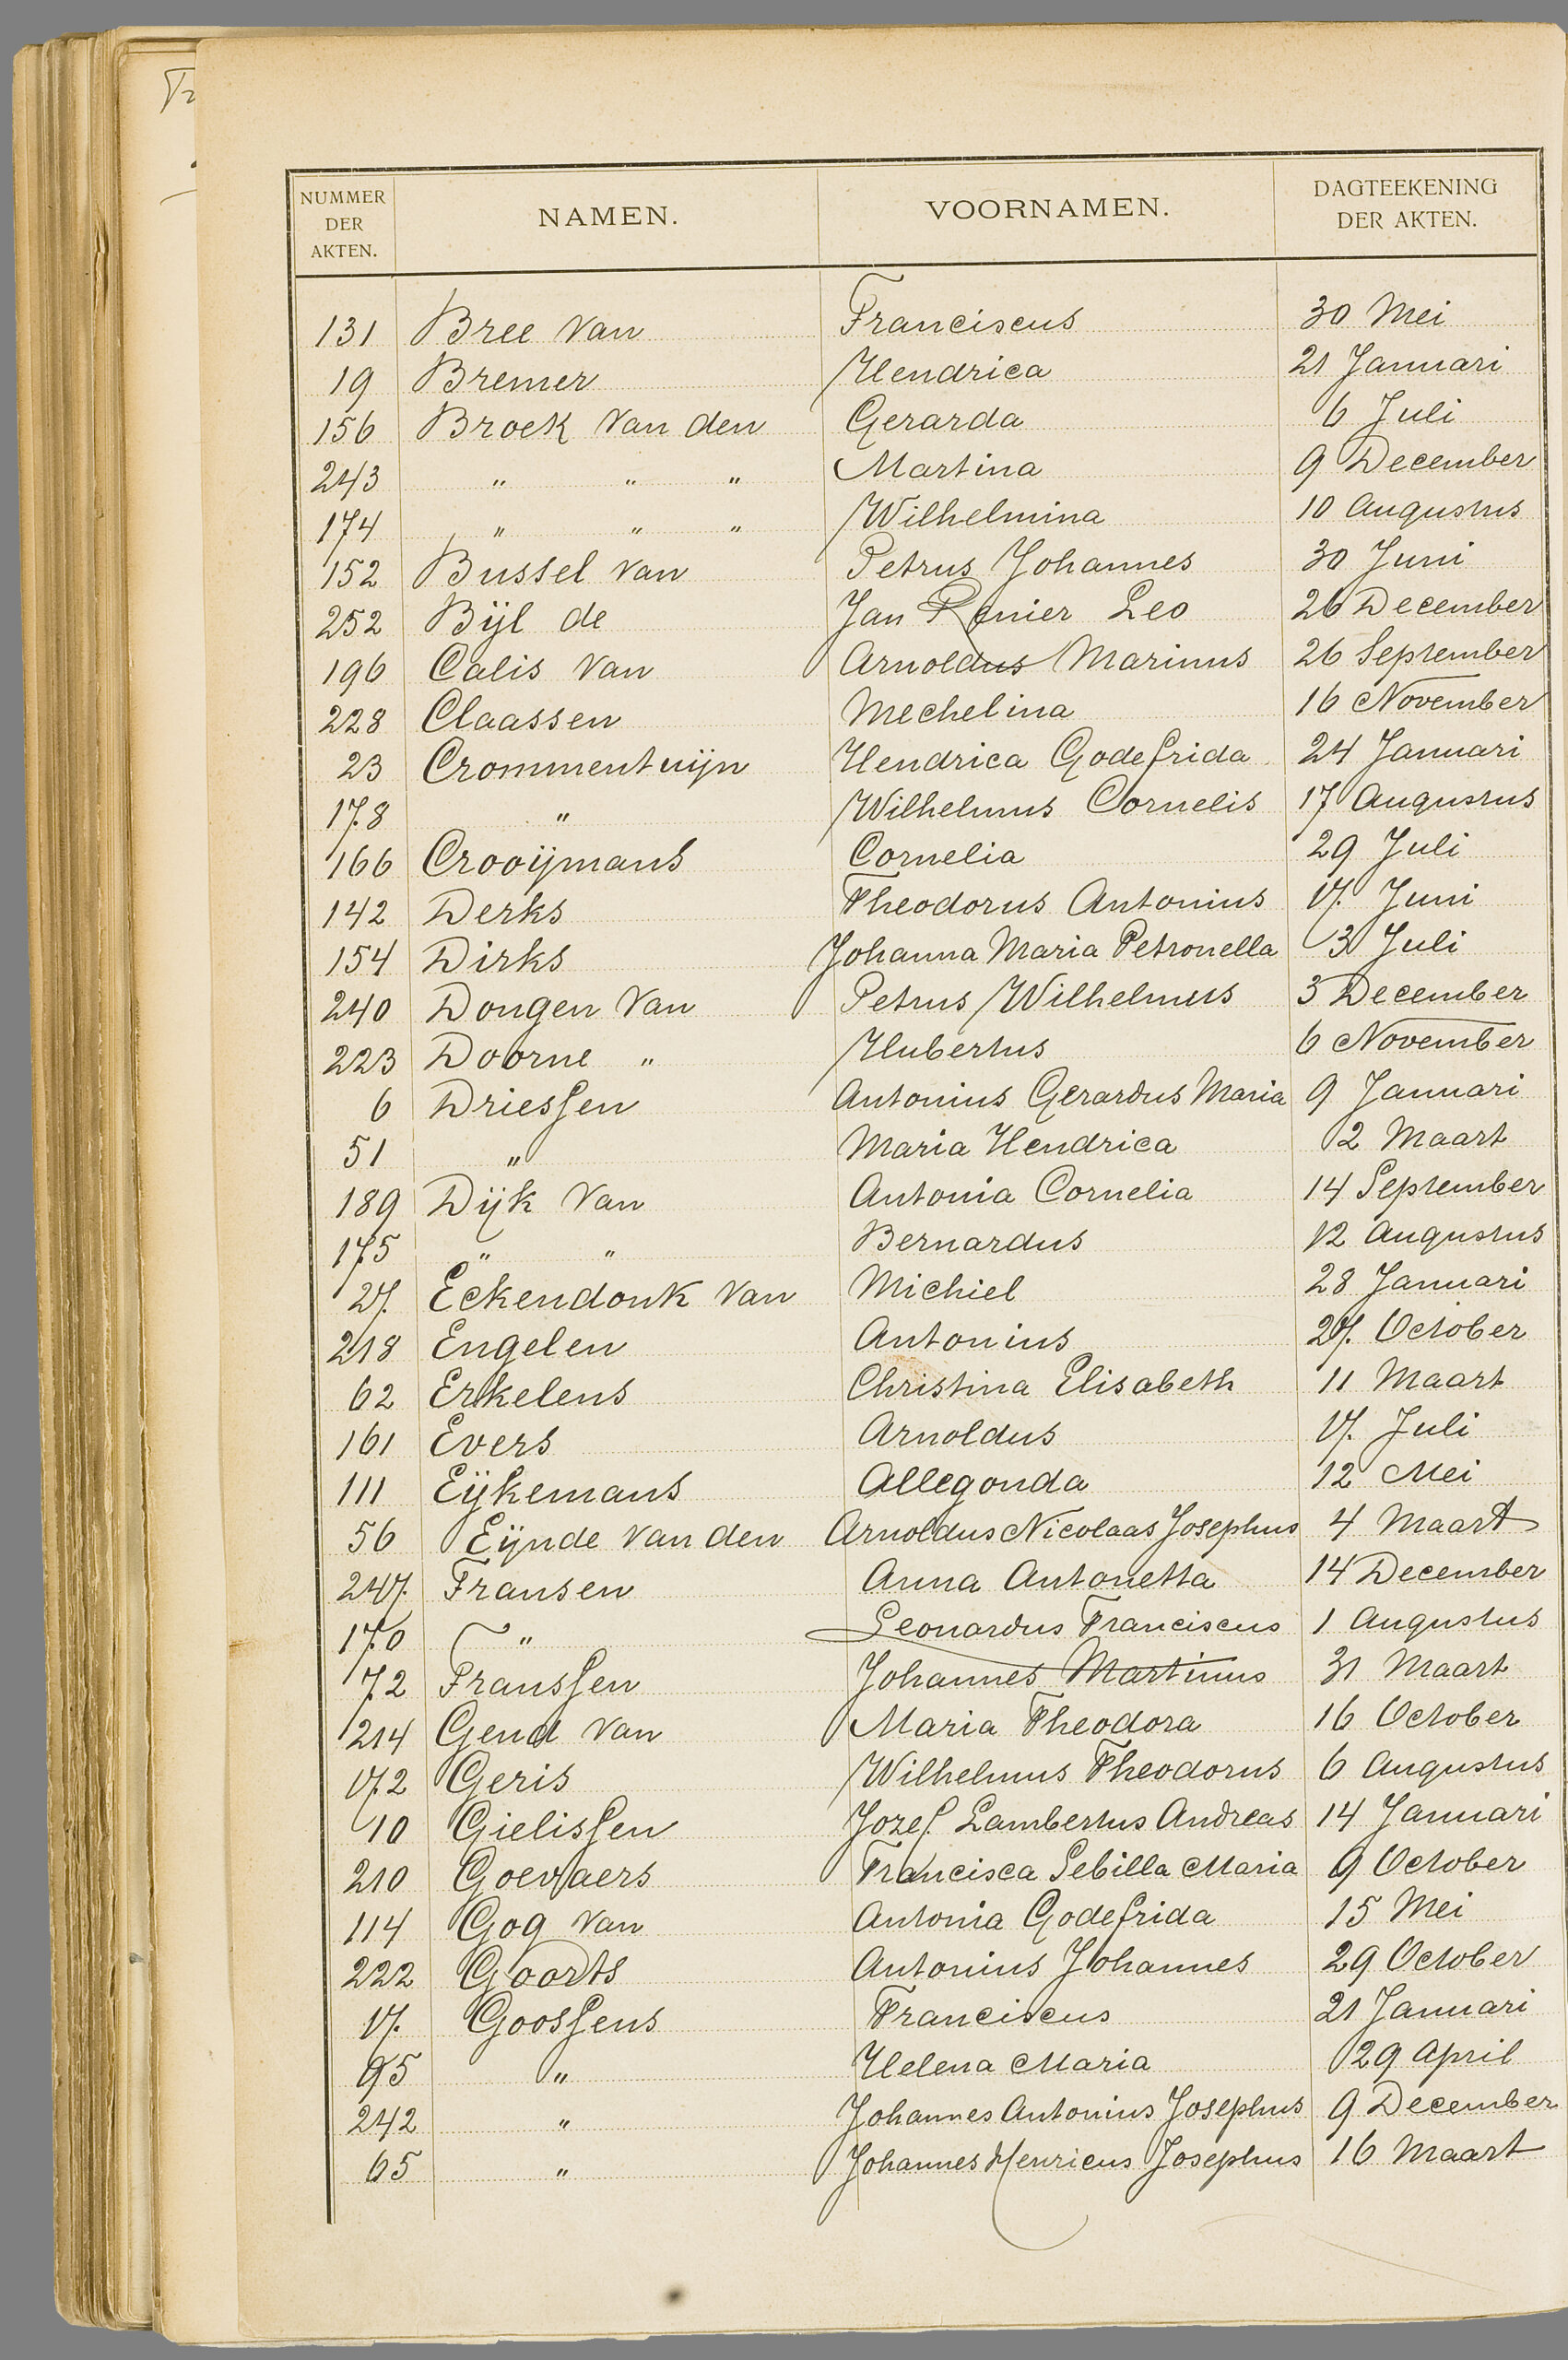 NUMMER DER AKTEN. NAMEN. VOORNAMEN. DAGTEEKENING DER AKTEN.
131 Bree van Franciscus 30 Mei
19 Bremer Hendrica 21 Januari
156 Broek van den Gerarda 6 Juli
243 " " " Martina 9 December
174 " " " Wilhelmina 10 Augustus
152 Bussel van Petrus Johannes 30 Juni
252 Bijl de Jan Renier Leo 26 December
196 Calis van Arnoldus Marinus 26 September
228 Claassen Mechelina 16 November
23 Crommentuijn Hendrica Godefrida 24 Januari
178 " Wilhelmus Cornelis 17 Augustus
166 Crooijmans Cornelia 29 Juli
142 Derks Theodorus Antonius 17 Juni
154 Dirks Johanna Maria Petronella 3 Juli
240 Dongen van Petrus Wilhelmus 3 December
223 Doorne " Hubertus 6 November
6 Driessen Antonius Gerardus Maria 9 Januari
51 " Maria Hendrica 2 Maart
189 Dijk van Antonia Cornelia 14 September
175 " " Bernardus 12 Augustus
27 Eckendonk van Michiel 28 Januari
218 Engelen Antonius 27 October
62 Erkelens Christina Elisabeth 11 Maart
161 Evers Arnoldus 17 Juli
111 Eijkemans Allegonda 12 Mei
56 Eijnde van den Arnoldus Nicolaas Josephus 4 Maart
247 Fransen Anna Antonetta 14 December
170 " Leonardus Franciscus 1 Augustus
72 Franssen Johannes Martinus 31 Maart
214 Gend van Maria Theodora 16 October
172 Geris Wilhelmus Theodorus 6 Augustus
10 Gielissen Jozef Lambertus Andreas 14 Januari
210 Goevaers Francisca Sebilla Maria 9 October
114 Gog van Antonia Godefrida 15 Mei
222 Goorts Antonius Johannes 29 October
17 Goossens Franciscus 21 Januari
95 " Helena Maria 29 April
242 " Johannes Antonius Josephus 9 December
65 " Johannes Henricus Josephus 16 Maart